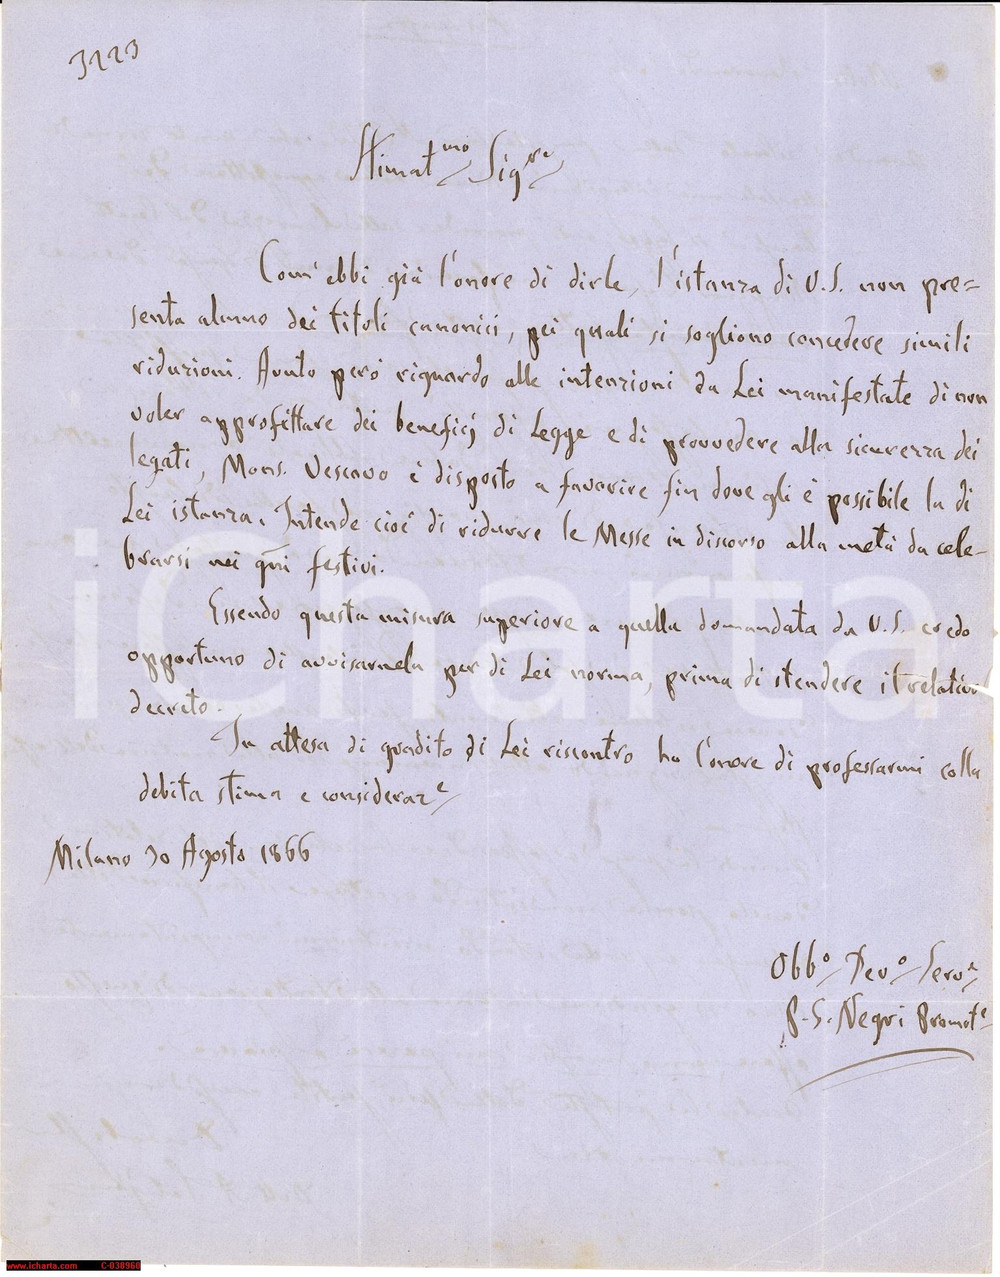 3223
Stimat.mo Sig.re
Com' ebbi già l'onore di dirle, l'istanza di V.S. non pre=
senta alcuno dei titoli canonici, pei quali si sogliono concedere simili
riduzioni. Avuto però riguardo alle intenzioni da Lei manifestate di non
voler approfittare dei beneficj di Legge e di provvedere alla sicurezza dei
legati, Mons. Vescovo è disposto a favorire fin dove gli è possibile la di
Lei istanza. Intende cioè di ridurre le Messe in discorso alla metà da cele-
brarsi nei gni festivi.
Essendo questa misura superiore a quella domandata da V.S. credo
opportuno di avvisarnela per di Lei norma, prima di stendere il relativo
decreto.
In attesa di gradito di Lei riscontro ho l'onore di professarmi colla
debita stima e consideraz.e
Milano 30 Agosto 1866
Obb.o Dev.o Serv.e
P. S. Negri Promot.e
iCharta
www.icharta.com C-038960